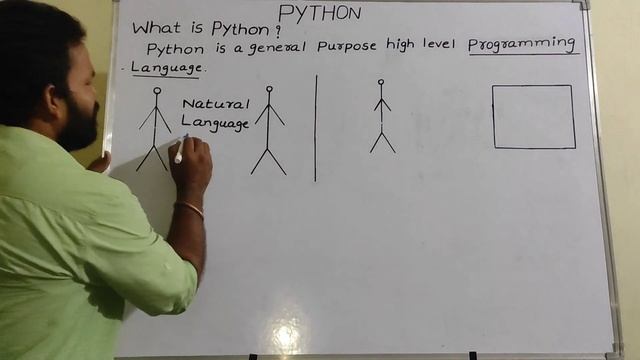 PYTHON
What is Python?
Python is a general Purpose high level Programming
Language.
Natural
Language